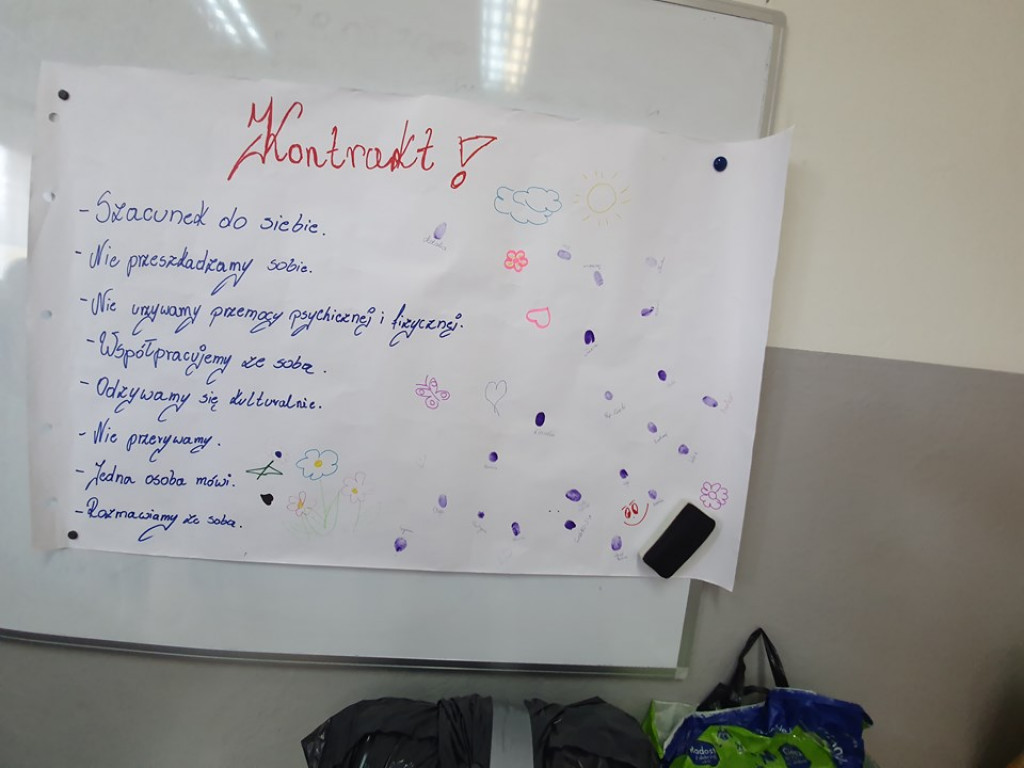 Kontrakt!
- Szacunek do siebie.
- Nie przeszkadzamy sobie.
- Nie urzywamy przemocy psychicznej i fizycznej.
- Współpracujemy ze sobą.
- Odzywamy się kulturalnie.
- Nie przerywamy.
- Jedna osoba mówi.
- Rozmawiamy ze sobą.